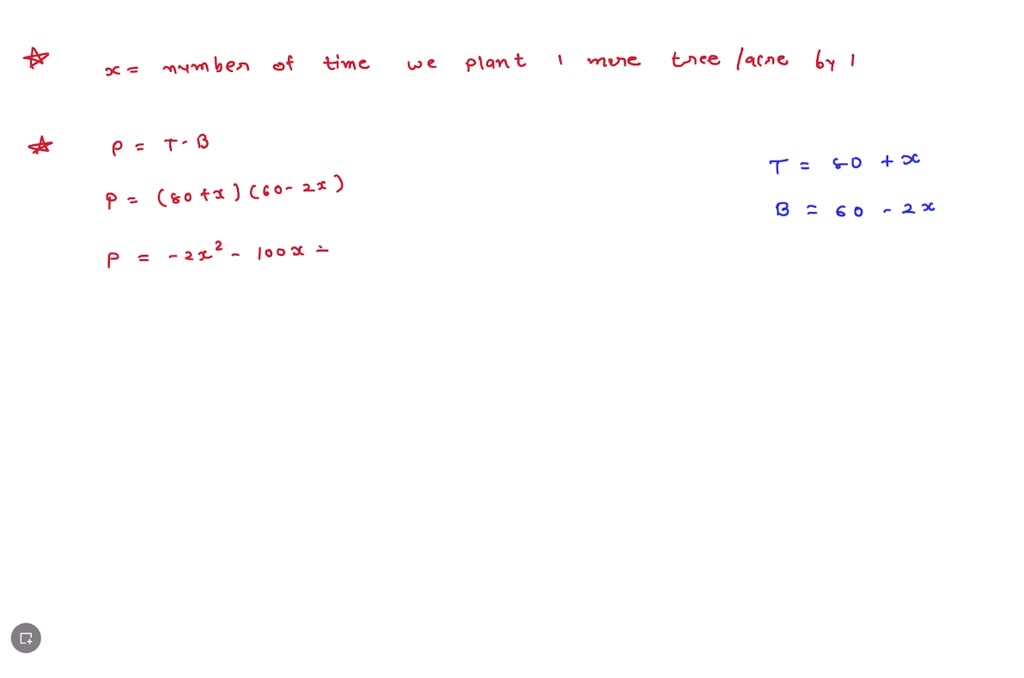 ☆ x = number of time we plant 1 more tree /acre by 1
☆ P = T · B
P = (80 + x) (60 - 2x)
T = 80 + x
B = 60 - 2x
P = -2x² - 100x =